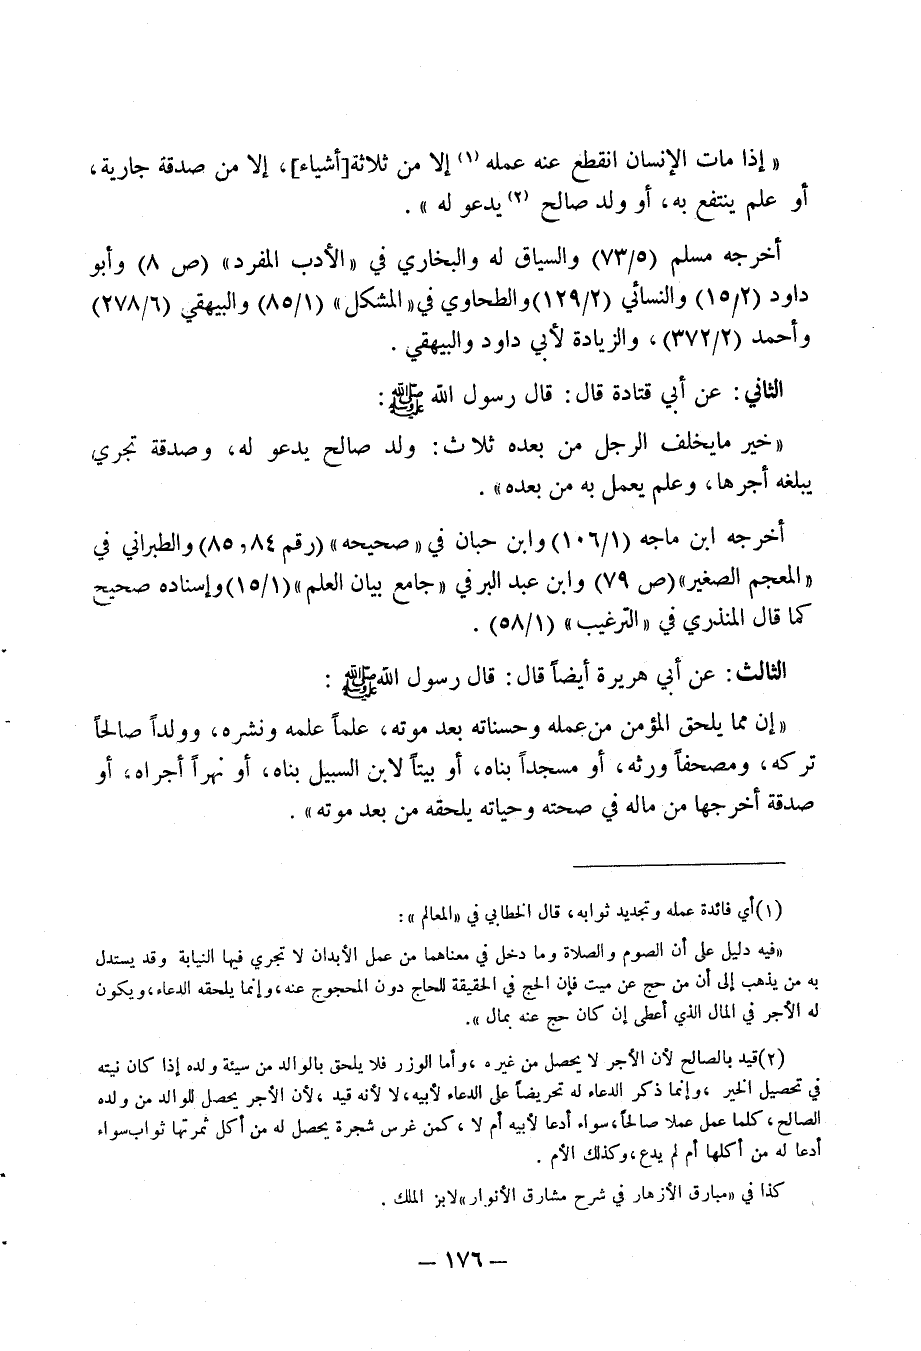 « إذا مات الإنسان انقطع عنه عمله (١) إلا من ثلاثة[أشياء]، إلا من صدقة جارية،
أو علم ينتفع به، أو ولد صالح (٢) يدعو له » .
أخرجه مسلم (٧٣/٥) والسياق له والبخاري في «الأدب المفرد» (ص ٨) وأبو
داود (١٥/٢) والنسائي (١٢٩/٢)والطحاوي في«المشكل» (٨٥/١) والبيهقي (٢٧٨/٦)
وأحمد (٣٧٢/٢)، والزيادة لأبي داود والبيهقي .
الثاني: عن أبي قتادة قال: قال رسول الله ﷺ:
«خير مايخلف الرجل من بعده ثلاث: ولد صالح يدعو له، وصدقة تجري
يبلغه أجرها، وعلم يعمل به من بعده» .
أخرجه ابن ماجه (١٠٦/١)وابن حبان في «صحيحه» (رقم ٨٤ , ٨٥)والطبراني في
«المعجم الصغير»(ص ٧٩) وابن عبد البر في «جامع بيان العلم»(١٥/١)وإسناده صحيح
كما قال المنذري في «الترغيب» (٥٨/١) .
الثالث: عن أبي هريرة أيضاً قال: قال رسول الله ﷺ :
«إن مما يلحق المؤمن من عمله وحسناته بعد موته، علماً علمه ونشره، وولداً صالحاً
تركه، ومصحفاً ورثه، أو مسجداً بناه، أو بيتاً لابن السبيل بناه، أو نهراً أجراه، أو
صدقة أخرجها من ماله في صحته وحياته يلحقه من بعد موته» .
(١)أي فائدة عمله وتجديد ثوابه، قال الخطابي في «المعالم »:
«فيه دليل على أن الصوم والصلاة وما دخل في معناهما من عمل الأبدان لا تجري فيها النيابة وقد يستدل
به من يذهب إلى أن من حج عن ميت فإن الحج في الحقيقة للحاج دون المحجوج عنه،وإنما يلحقه الدعاء،ويكون
له الأجر في المال الذي أعطى إن كان حج عنه بمال ».
(٢)قيد بالصالح لأن الأجر لا يحصل من غيره ،وأما الوزر فلا يلحق بالوالد من سيئة ولده إذا كان نيته
في تحصيل الخير ،وإنما ذكر الدعاء له تحريضاً على الدعاء لأبيه،لا لأنه قيد ،لأن الأجر يحصل للوالد من ولده
الصالح،كلما عمل عملا صالحاً،سواء أدعا لأبيه أم لا ،كمن غرس شجرة يحصل له من أكل ثمرتها ثواب سواء
أدعا له من أكلها أم لم يدع،وكذلك الأم .
كذا في «مبارق الأزهار في شرح مشارق الأنوار»لابن الملك .
— ١٧٦ —